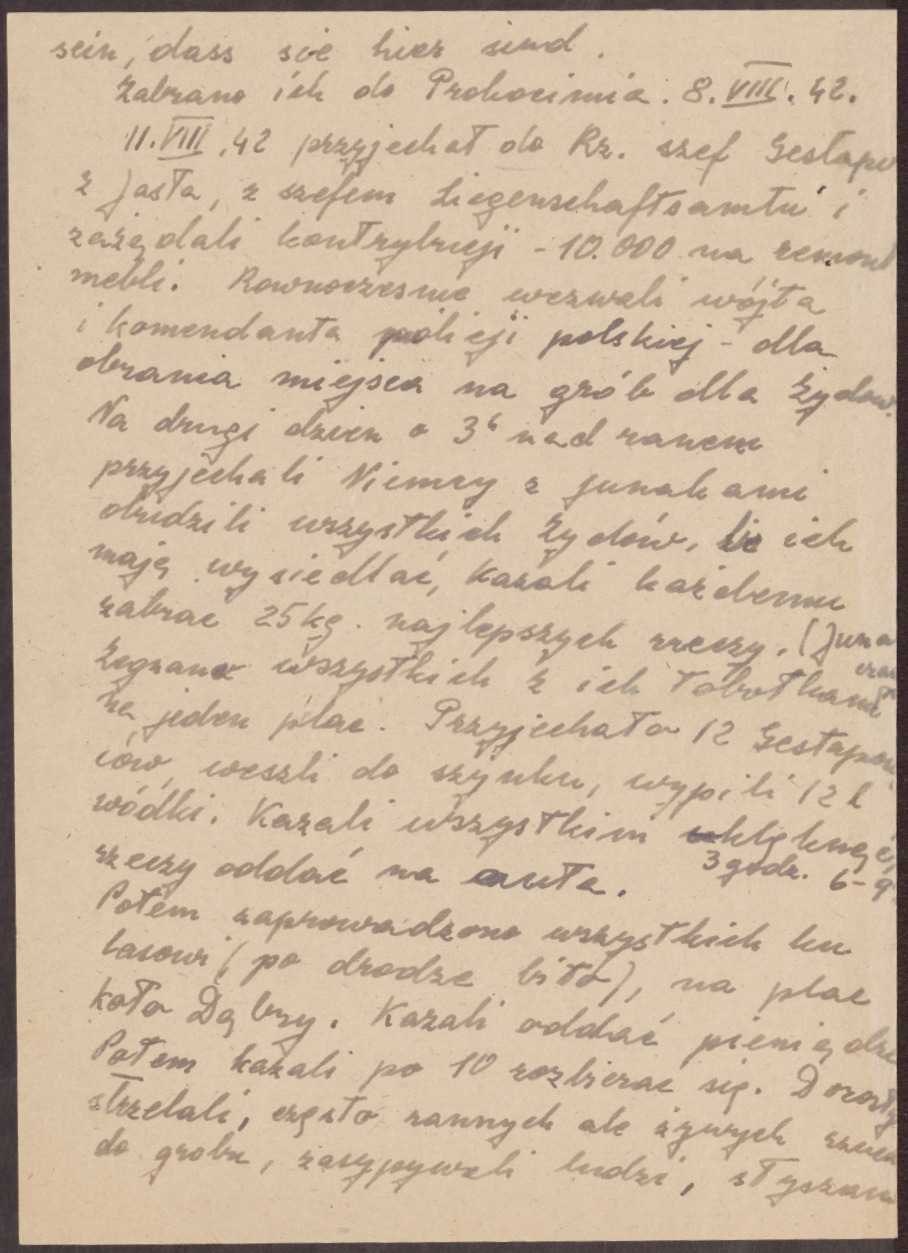 sein, dass sie hier sind.
Zabrano ich do Prokocimia. 8.VIII.42.
11.VIII.42 przyjechał do Rz. szef Gestapo
z Jasła, z szefem Liegenschaftsamtu i
zażądali kontrybucji - 10.000 na remont
mebli. Rownoczesnie wezwali wójta
i komendanta policji polskiej - dla
obrania miejsca na grób dla Żydow.
Na drugi dzien o 3h nad ranem
przyjechali Niemcy z junakami
obudzili wszystkich Żydów, że ich
mają wysiedlać, kazali każdemu
zabrac 25 kg. najlepszych rzeczy. (Juna
Zegnano wszystkich z ich tobołkami
na jeden plac. Przyjechało 12 Gestapow
ców, weszli do szynku, wypili 12 l
wódki. Kazali wszystkim uklęknąć,
3 godz. 6-9
rzeczy oddać na auta.
Potem zaprowadzono wszystkich ku
lasowi (po drodze bito), na plac
koło Dąbry. Kazali oddać pieniądze
Potem kazali po 10 rozbierac się.
strzelali, często rannych ale żywych
do grobu, zasypywali ludzi, słyszan